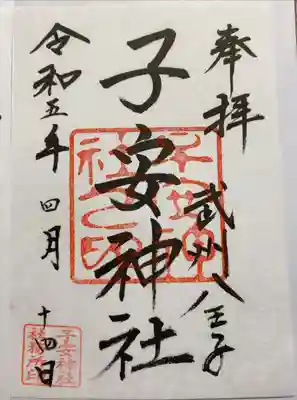 奉拝
武州八王子
子安神社
令和五年
四月
十四日
子安神社
社務所印